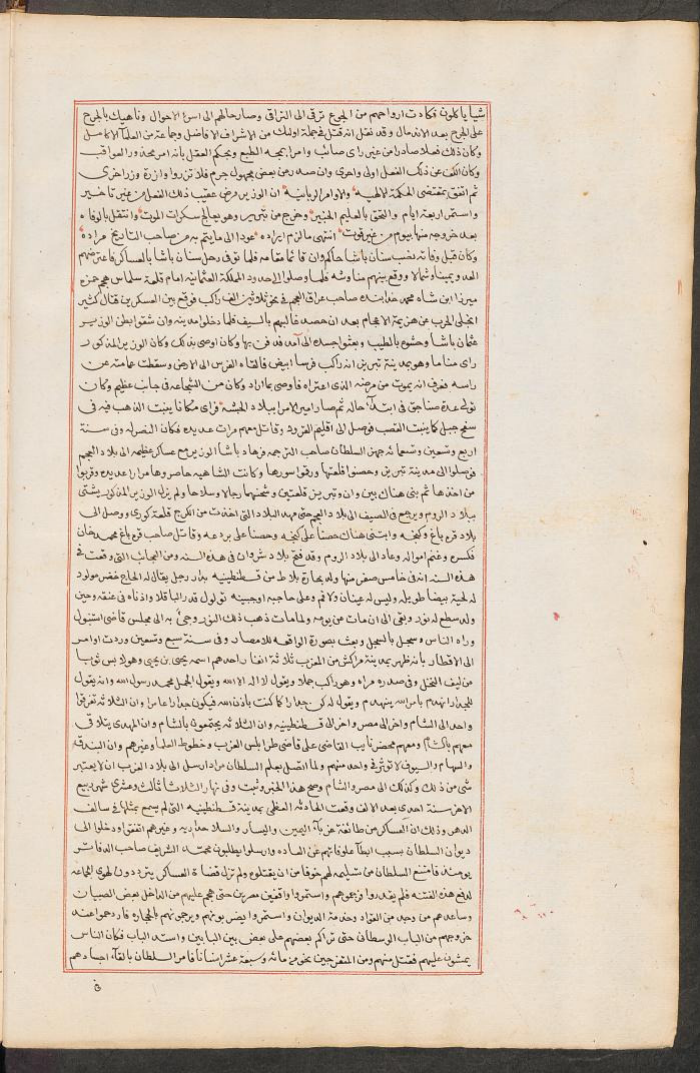 شيا ياكلون فكادت ارواحهم من الجوع ترقى الى التراقى وصار حالهم الى اسوء الاحوال وناهيك بالجرح
على الجرح بعد الاندمال وقد نقل انه قتل فى جملة اولئك من الاشراف الافاضل وجماعة من العلما الاكامل
وكان ذلك فعلا صادرا من غير راى صائب وامرا يمجه الطبع ويحكم العقل بانه امر محذور العواقب
وكان الكف عن ذلك الفعل اولى واحرى وان صدر من بعض مجهول جرم فلا تزر وازرة وزر اخرى
ثم اتفق بمقتضى الحكمة الالهية والاوامر الربانية ان الوزير مرض عقيب ذلك الفعل من غير تاخير
واستمر اربعة ايام والتحق بالعليم الخبير وخرج من تبريز وهو يعالج سكرات الموت وانتقل بالوفاه
بعد خروجه منها بيوم من غير فوت انتهى ما لزم ايراده عودا الى ما يتم به من صاحب التاريخ مراده
وكان قبل وفاته نصب سنان باشا حاكم وان قائما مقامه فلما توفى رحل سنان باشا بالعساكر فاعترضهم
العدو يمينا وشمالا ووقع بينهم مناوشه فلما وصلوا الى حدود المملكة العثمانيه امام قلعة سلماس هجم حمزه
ميرزا ابن شاه محمد خدابنده صاحب عراق العجم فى نحو ثلاثين الف راكب فوقع بين العسكرين قتال كثير
انجلى الحرب عن هزيمة الاعجام بعد ان حصد غالبهم بالسيف فلما دخلوا مدينة وان شقوا بطن الوزير
عثمان باشا وحشوه بالطيب وبعثوا جسده الى آمد فدفن بها وكان اوصى بذلك وكان الوزير المذكور
راى مناما وهو بمدينة تبريز انه راكب فرسا ابيض فالقاه الفرس الى الارض وسقطت عمامته عن
راسه فعرف انه يموت من مرضه الذى اعتراه فاوصى بما اراد وكان من الشجاعه فى جانب عظيم وكان
تولى عدة صناجق فى ابتدآء حاله ثم صار امير الامرا ببلاد الحبشة فراى مكانا ينبت الذهب فيه فى
سفح جبل كما ينبت القصب فوصل الى اقليم القرود وقاتل معهم مرات عديده فكان النصر له وفى سنة
اربع وتسعين وتسعمائة جهز السلطان صاحب الترجمه فرهاد باشا الوزير مع عساكر عظيمه الى بلاد العجم
فوصلوا الى مدينة تبريز وحصنوا قلعتها ورقوا سورها وكانت الشاهيه حاصروها مرارا عديده وقربوا
من اخذها ثم بنى هناك بين وان وتبريز قلعتين وشحنهما رجالا وسلاحا ولم يزل الوزير المذكور يشتى
ببلاد الروم ويرجع فى الصيف الى بلاد العجم حتى مهد البلاد التى اخذت من الكرج قلعة كورى ووصل الى
بلاد قره باغ وكنجه وابتنى هناك حصنا على كنجه وحصنا على بردعه وقاتل صاحب قره باغ محمد خان
فكسره وغنم امواله وعاد الى بلاد الروم وقد فتح بلاد شروان فى هذه السنه ومن العجائب التى وقعت فى
هذه السنه انه فى خامس صفر منها ولد بحارة بلاط من قسطنطينيه بدار رجل يقال له الحاج خضر مولود
له لحية بيضا طويله وليس له عينان ولا فم وعلى حاجبه اوجبينه ثولول قدر الباقلا واذناه فى عنقه وحين
ولد سطع له نور وبقى الى ان مات من يومه ولما مات ذهب ذلك النور وجئ به الى مجلس قاضى استنبول
وراه الناس وسجل بالسجل وبعث بصورة الواقعه للامصار وفى سنة سبع وتسعين وردت اوامر
الى الاقطار بانه ظهر بمدينة مراكش من المغرب ثلاثة انفار احدهم اسمه يحيى بن يحيى وهو لابس ثوبا
من ليف النخل وفى صدره مراه وهو راكب جملا ويقول لا اله الا الله ويقول الجمل محمد رسول الله وانه يقول
للجدار انهدم بامر الله ينهدم ويقول له كن جدارا كما كنت باذن الله فيكون جدارا عامرا وان الثلاثه تفرقوا
واحد الى الشام واخر الى مصر واخر الى قسطنطينيه وان الثلاثه يجتمعون بالشام وان المهدى يتلاقى
معهم بالشام ومعهم محضر نايب القاضى على قاضى طرابلس الغرب وخطوط العلما وغيرهم وان البندقه
والسهام والسيوف لا توثر فى واحد منهم ولما اتصل بعلم السلطان مراد ارسل الى بلاد الغرب ان لا يعتبر
شى من ذلك وكذلك الى مصر والشام وصح هذا الخبر وثبت وفى نهار الثلاثا ثالث وعشرى شهر ربيع
الاخر سنة احدى بعد الالف وقعت الحادثه العظمى بمدينة قسطنطينيه التى لم يسمع بمثلها فى سالف
الدهر وذلك ان العسكر من طائفة غربآء اليمين واليسار والسلاحداريه وغيرهم اتفقوا ودخلوا الى
ديوان السلطان بسبب ابطآء علوفاتهم عن العاده وارسلوا يطلبون محمد الشريف صاحب الدفاتر
يومئذ فامتنع السلطان من تسليمه لهم خوفا من ان يقتلوه ولم تزل قضاة العساكر يترددون لهوى الجماعه
لدفع هذه الفتنه فلم يقدروا يرجعوهم واستمروا واقفين مصرين حتى هجم عليهم من الداخل بعض الصبيان
وساعدهم من وجد من القواد وخدمة الديوان واستمروا يضربونهم ويرجمونهم بالحجاره فازدحموا عند
خروجهم من الباب الوسطانى حتى تراكم بعضهم على بعض بين البابين وانسد الباب فكان الناس
يمشون عليهم فقتل منهم ومن المتفرجين نحو من مائة وسبعة عشر انسانا فامر السلطان بالقآء اجسادهم
فى